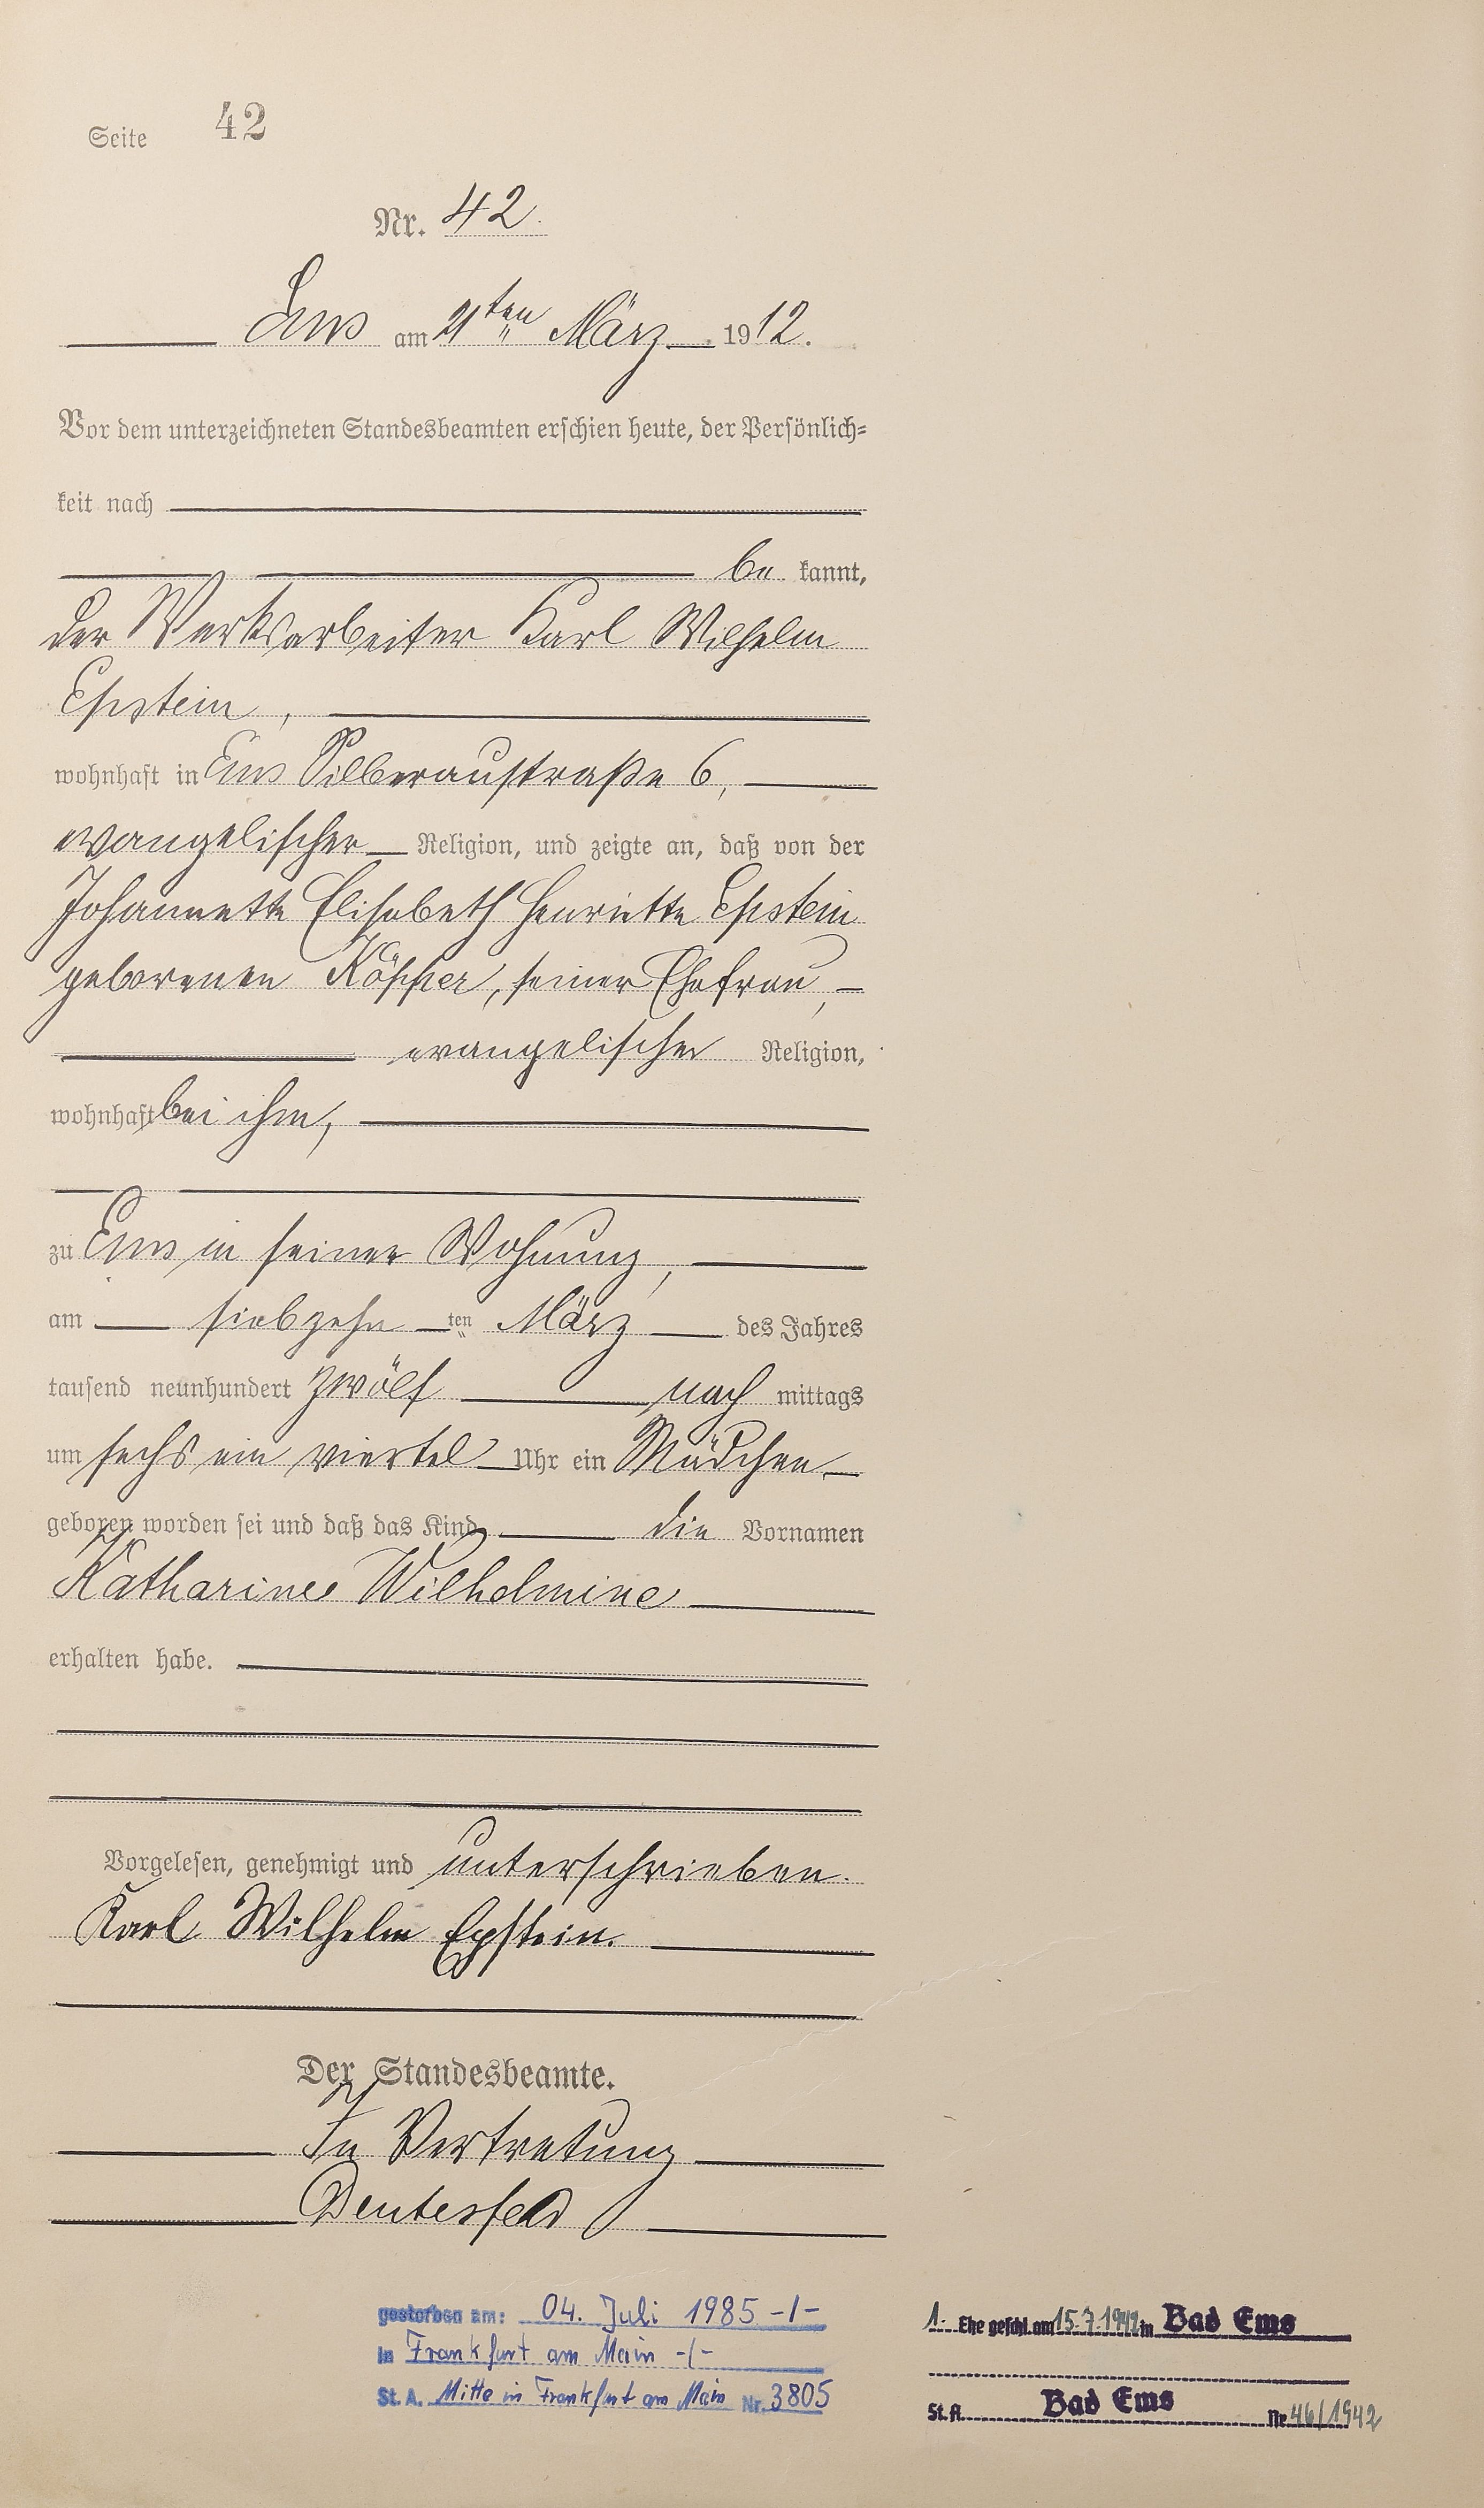 Seite 42
Nr. 42.
Ems am 21ten März 1912.
Vor dem unterzeichneten Standesbeamten erschien heute, der Persönlich=
keit nach
be kannt,
der Werksarbeiter Karl Wilhelm
Epstein,
wohnhaft in Ems Silberaustraße 6,
evangelischer Religion, und zeigte an, daß von der
Johannette Elisabeth Henriette Epstein
geborenen Köpper, seiner Ehefrau,
evangelischer Religion,
wohnhaft bei ihm,
zu Ems in seiner Wohnung,
am siebzehn ten März des Jahres
tausend neunhundert zwölf nach mittags
um sechs ein viertel Uhr ein Mädchen
geboren worden sei und daß das Kind die Vornamen
Katharine Wilhelmine
erhalten habe.
Vorgelesen, genehmigt und unterschrieben.
Karl Wilhelm Epstein.
Der Standesbeamte.
In Vertretung
Deutesfeld
gestorben am: 04. Juli 1985 -/-
in Frankfurt am Main -/-
St. A. Mitte in Frankfurt am Main Nr. 3805
1. Ehe geschl. am 15.7.1942 in Bad Ems
St. A. Bad Ems Nr. 46/1942